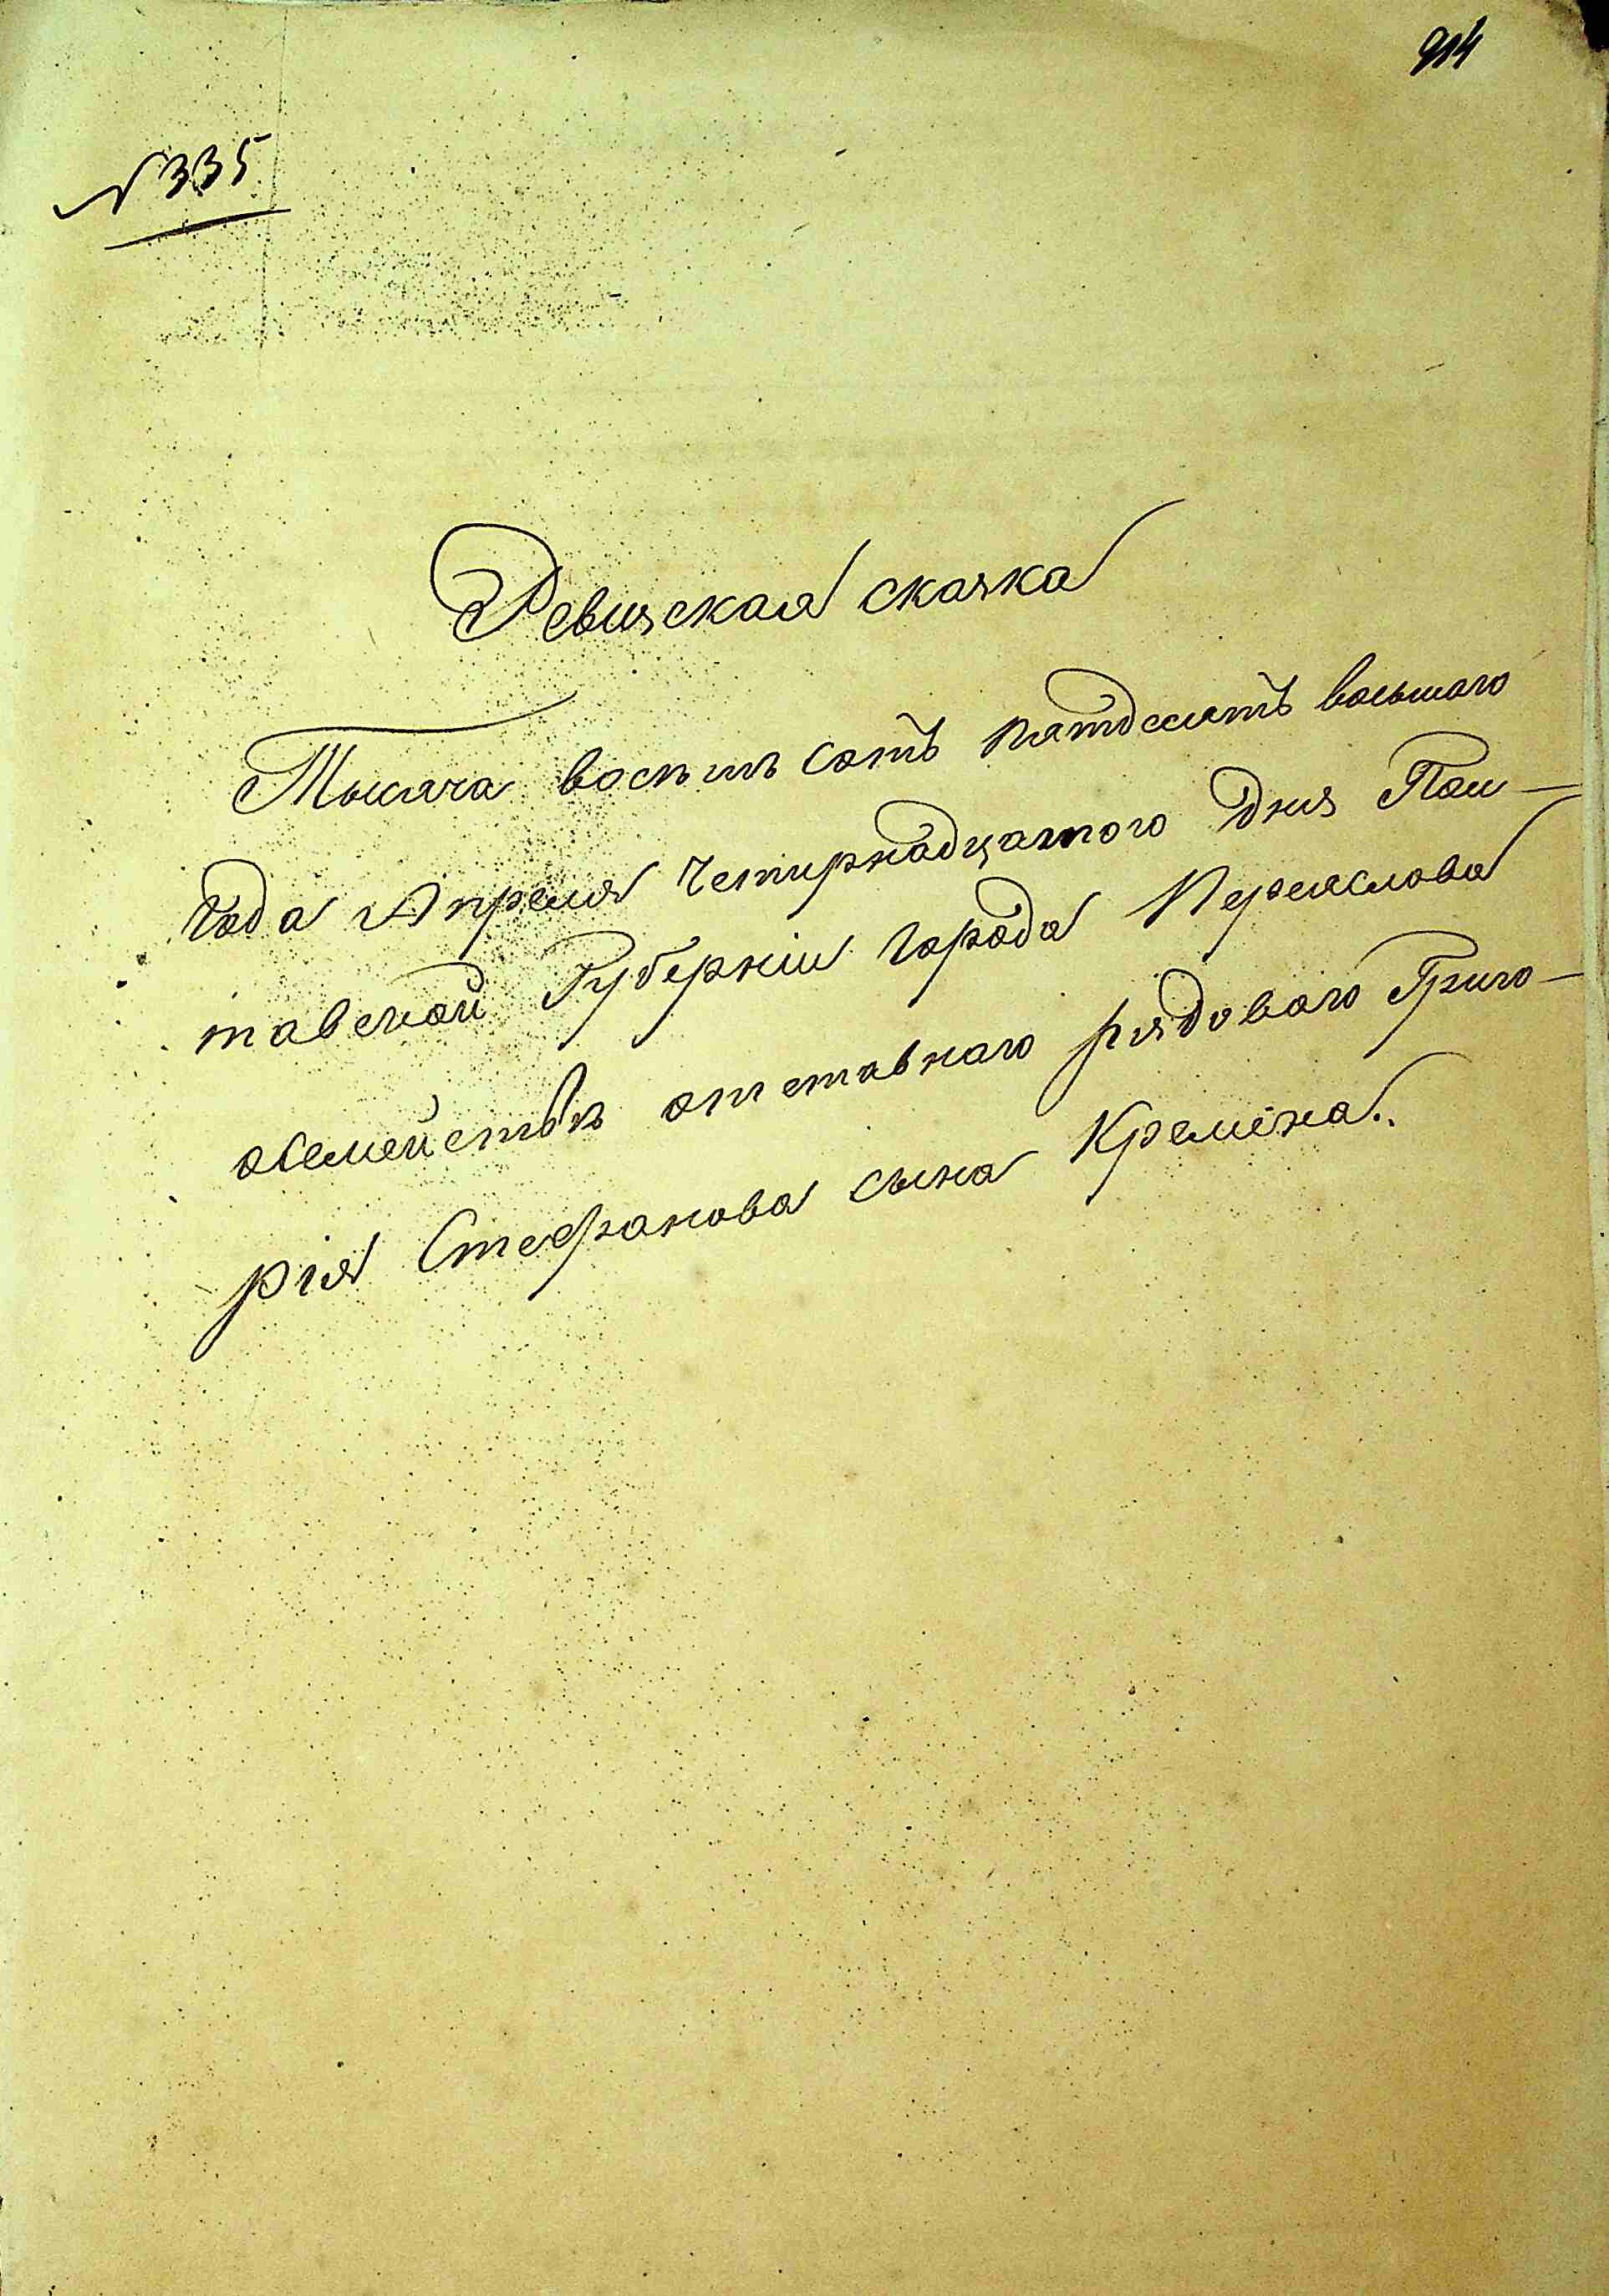 914
№ 335
Ревизская сказка
Тысяча восемь сотъ пятдесятъ восьмого
года Апреля Четирнадцатого дня Пол-
тавской Губерніи города Переяслова
о семействѣ отставного рядового Григо-
рія Стефанова сына Кремёна.